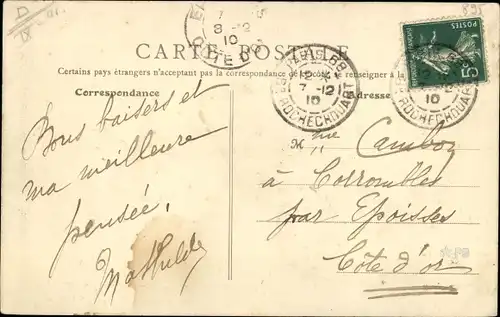 CARTE POSTALE
Certains pays étrangers n'acceptent pas la correspondance de ce côté, se renseigner à la
Correspondance
Adresse
8-12
10
CÔTE D'OR
7-12
10
ROCHECHOUART
10
ROCHECHOUART
5c
Bons baisers et
ma meilleure
pensée,
Mathilde
Mme Cambon
à Corrombles
par Epoisses
Côte d'or